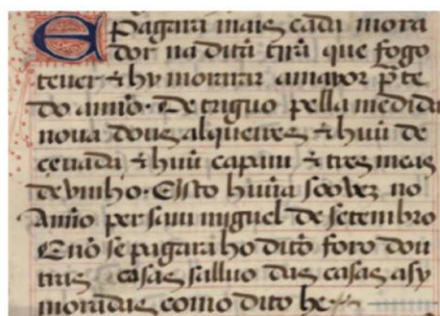 E pagara mais cada mora
dor na dita t̃rra que fogo
teuer & hy morarar amayor p̃te
do anño. De triguo pella medida
noua dous alqueires & huũ de
ceuada & huũ capam & tres meas
de vinho. E isto huũa soo vez no
Anño per sam miguel de setembro
E nõ se pagara ho dito foro dou
tras casas salluo das casas asy
moradas como dito he